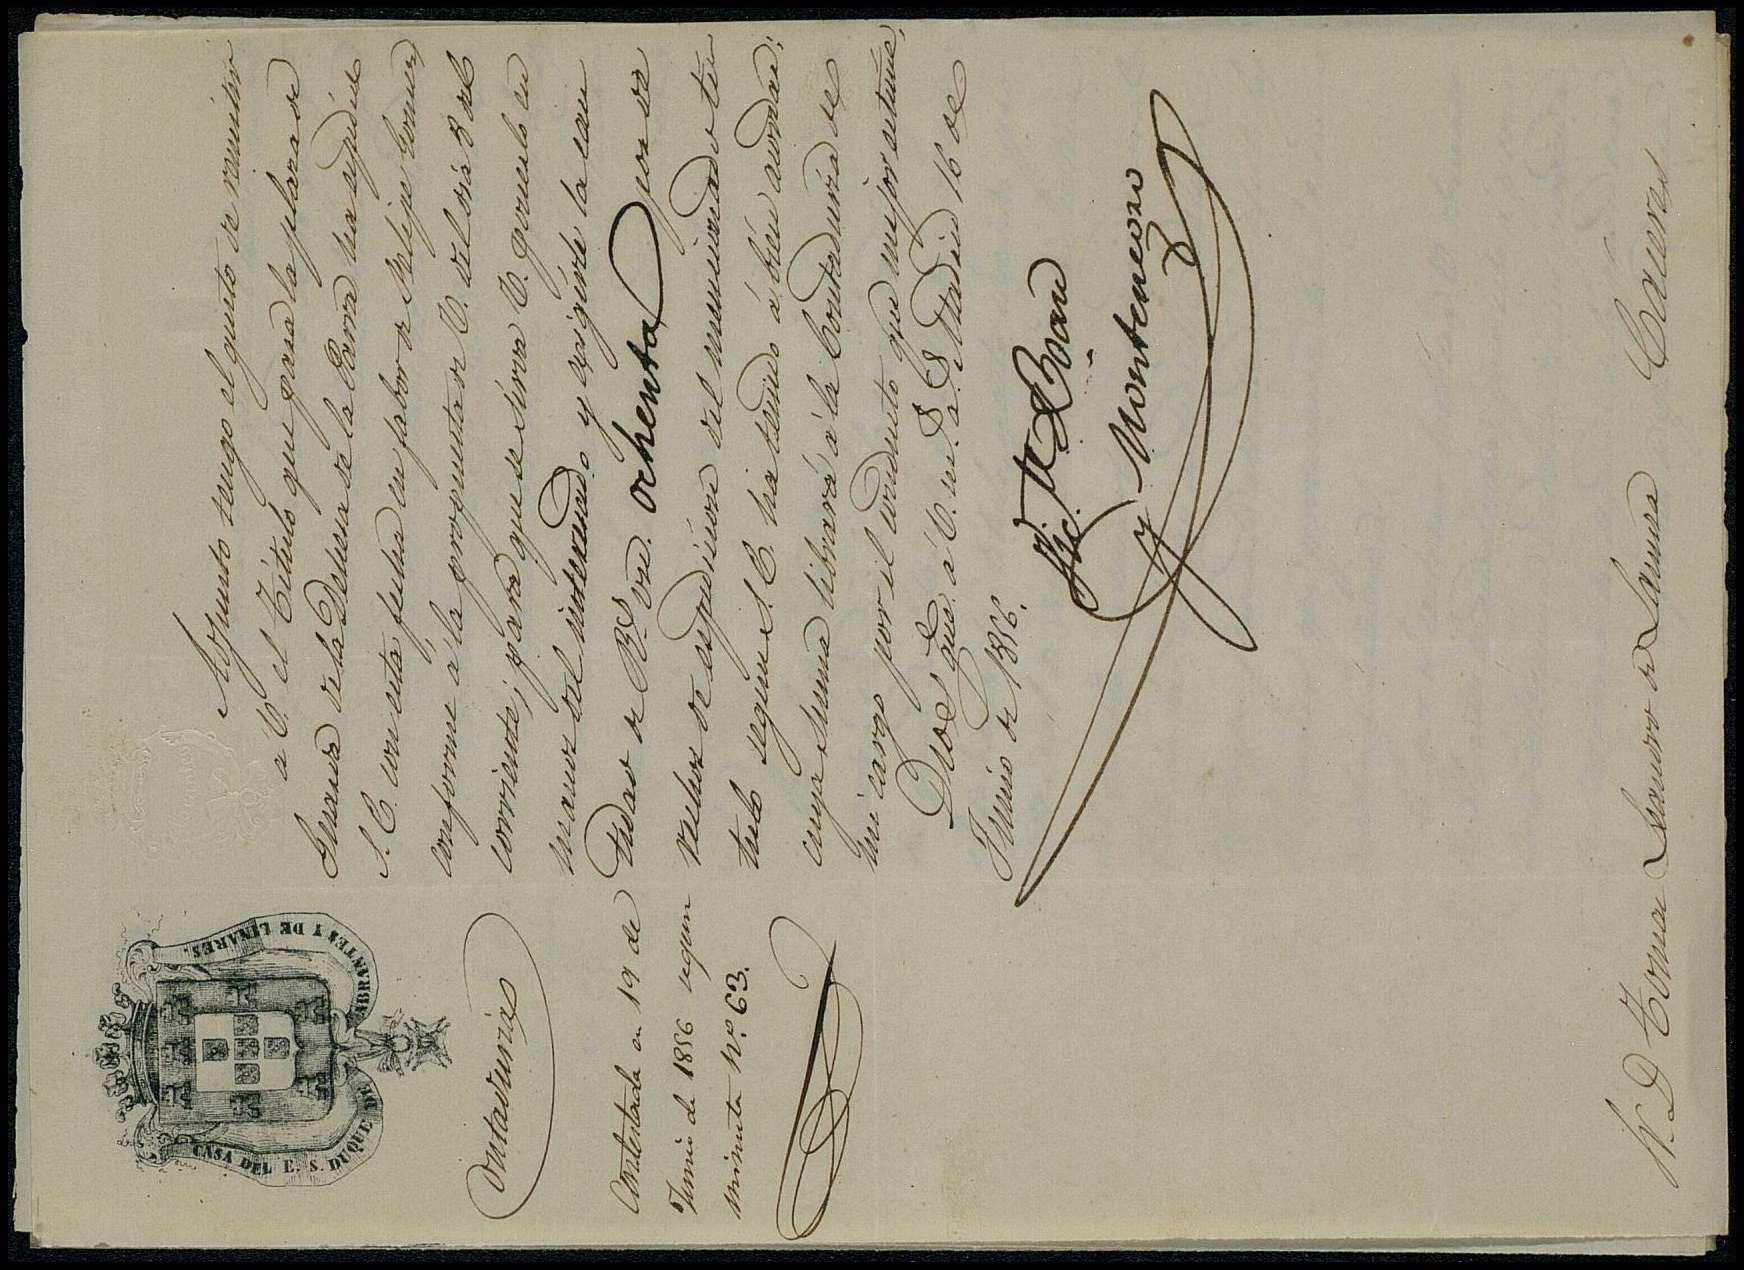 CASA DEL E. S. DUQUE DE ABRANTES Y DE LINARES.
Contaduria
Contestada en 19 de
Junio de 1856 segun
minuta Nº. 63.
Adjunto tengo el gusto de remitir
a V. el Título que para la plaza de
Guarda de la Dehesa de la Parra ha espedido
S. E. con esta fecha en fabor de Felipe Gomez
conforme á la propuesta de V. del dia 8 del
corriente, para que se sirva V. ponerlo en
manos del interesado y exigirle la can
tidad de Rs. vn. ochenta por de
rechos de espedicion del mencionado ti
tulo segun S. E. ha tenido á bien acordar;
cuya suma librará á la Contaduria de
mi cargo por el conducto que mejor estime.
Dios gue. á V. ms. as. Madrid 16 de
Junio de 1856.
Vic. de Coan
y Montenegro
Sr. D Tomas Lancho de Lamea Caceres